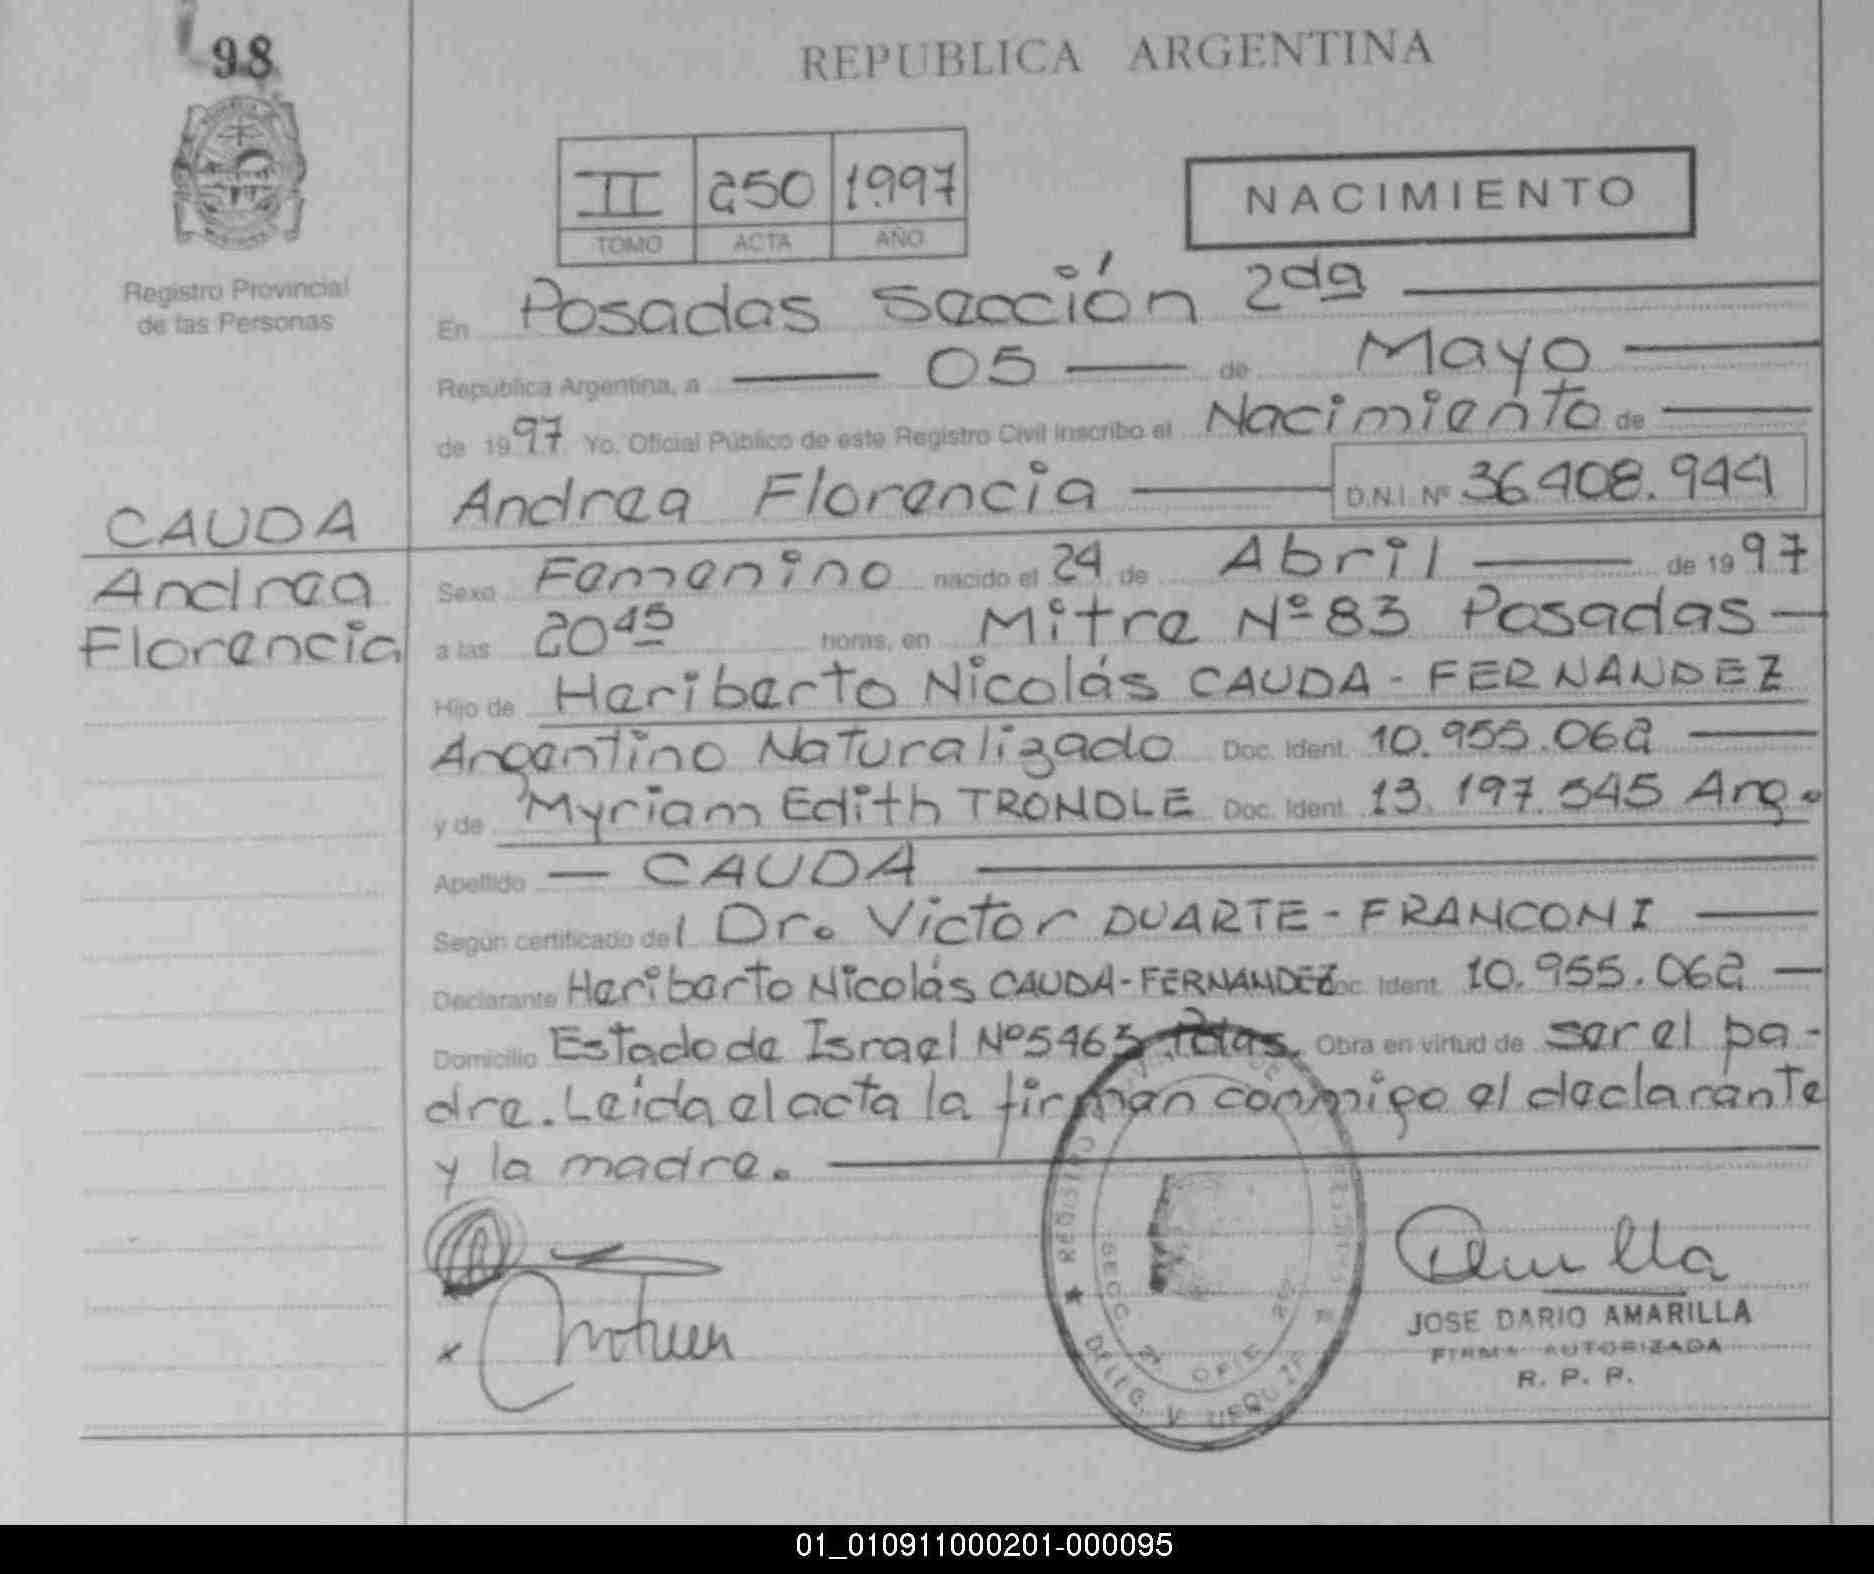 98
REPUBLICA ARGENTINA
II 250 1.997
TOMO ACTA AÑO
NACIMIENTO
Registro Provincial
de las Personas
En Posadas Sección 2da
República Argentina, a 05 de Mayo
de 1997 Yo, Oficial Público de este Registro Civil inscribo el Nacimiento de
Andrea Florencia D.N.I. Nº 36.408.944
CAUDA
Andrea
Florencia
Sexo Femenino nacido el 24 de Abril de 1997
a las 20 45 horas, en Mitre Nº 83 Posadas
Hijo de Heriberto Nicolás CAUDA - FERNANDEZ
Argentino Naturalizado Doc. Ident. 10.955.062
y de Myriam Edith TRONDLE Doc. Ident. 13.197.545 Arg.
Apellido CAUDA
Según certificado del Dr. Victor DUARTE - FRANCONI
Declarante Heriberto Nicolás CAUDA - FERNANDEZ Doc. Ident. 10.955.062
Domicilio Estado de Israel Nº 5463 Pdas. Obra en virtud de ser el pa-
dre. Leída el acta la firman conmigo el declarante
y la madre.
JOSE DARIO AMARILLA
FIRMA AUTORIZADA
R. P. P.
01_010911000201-000095